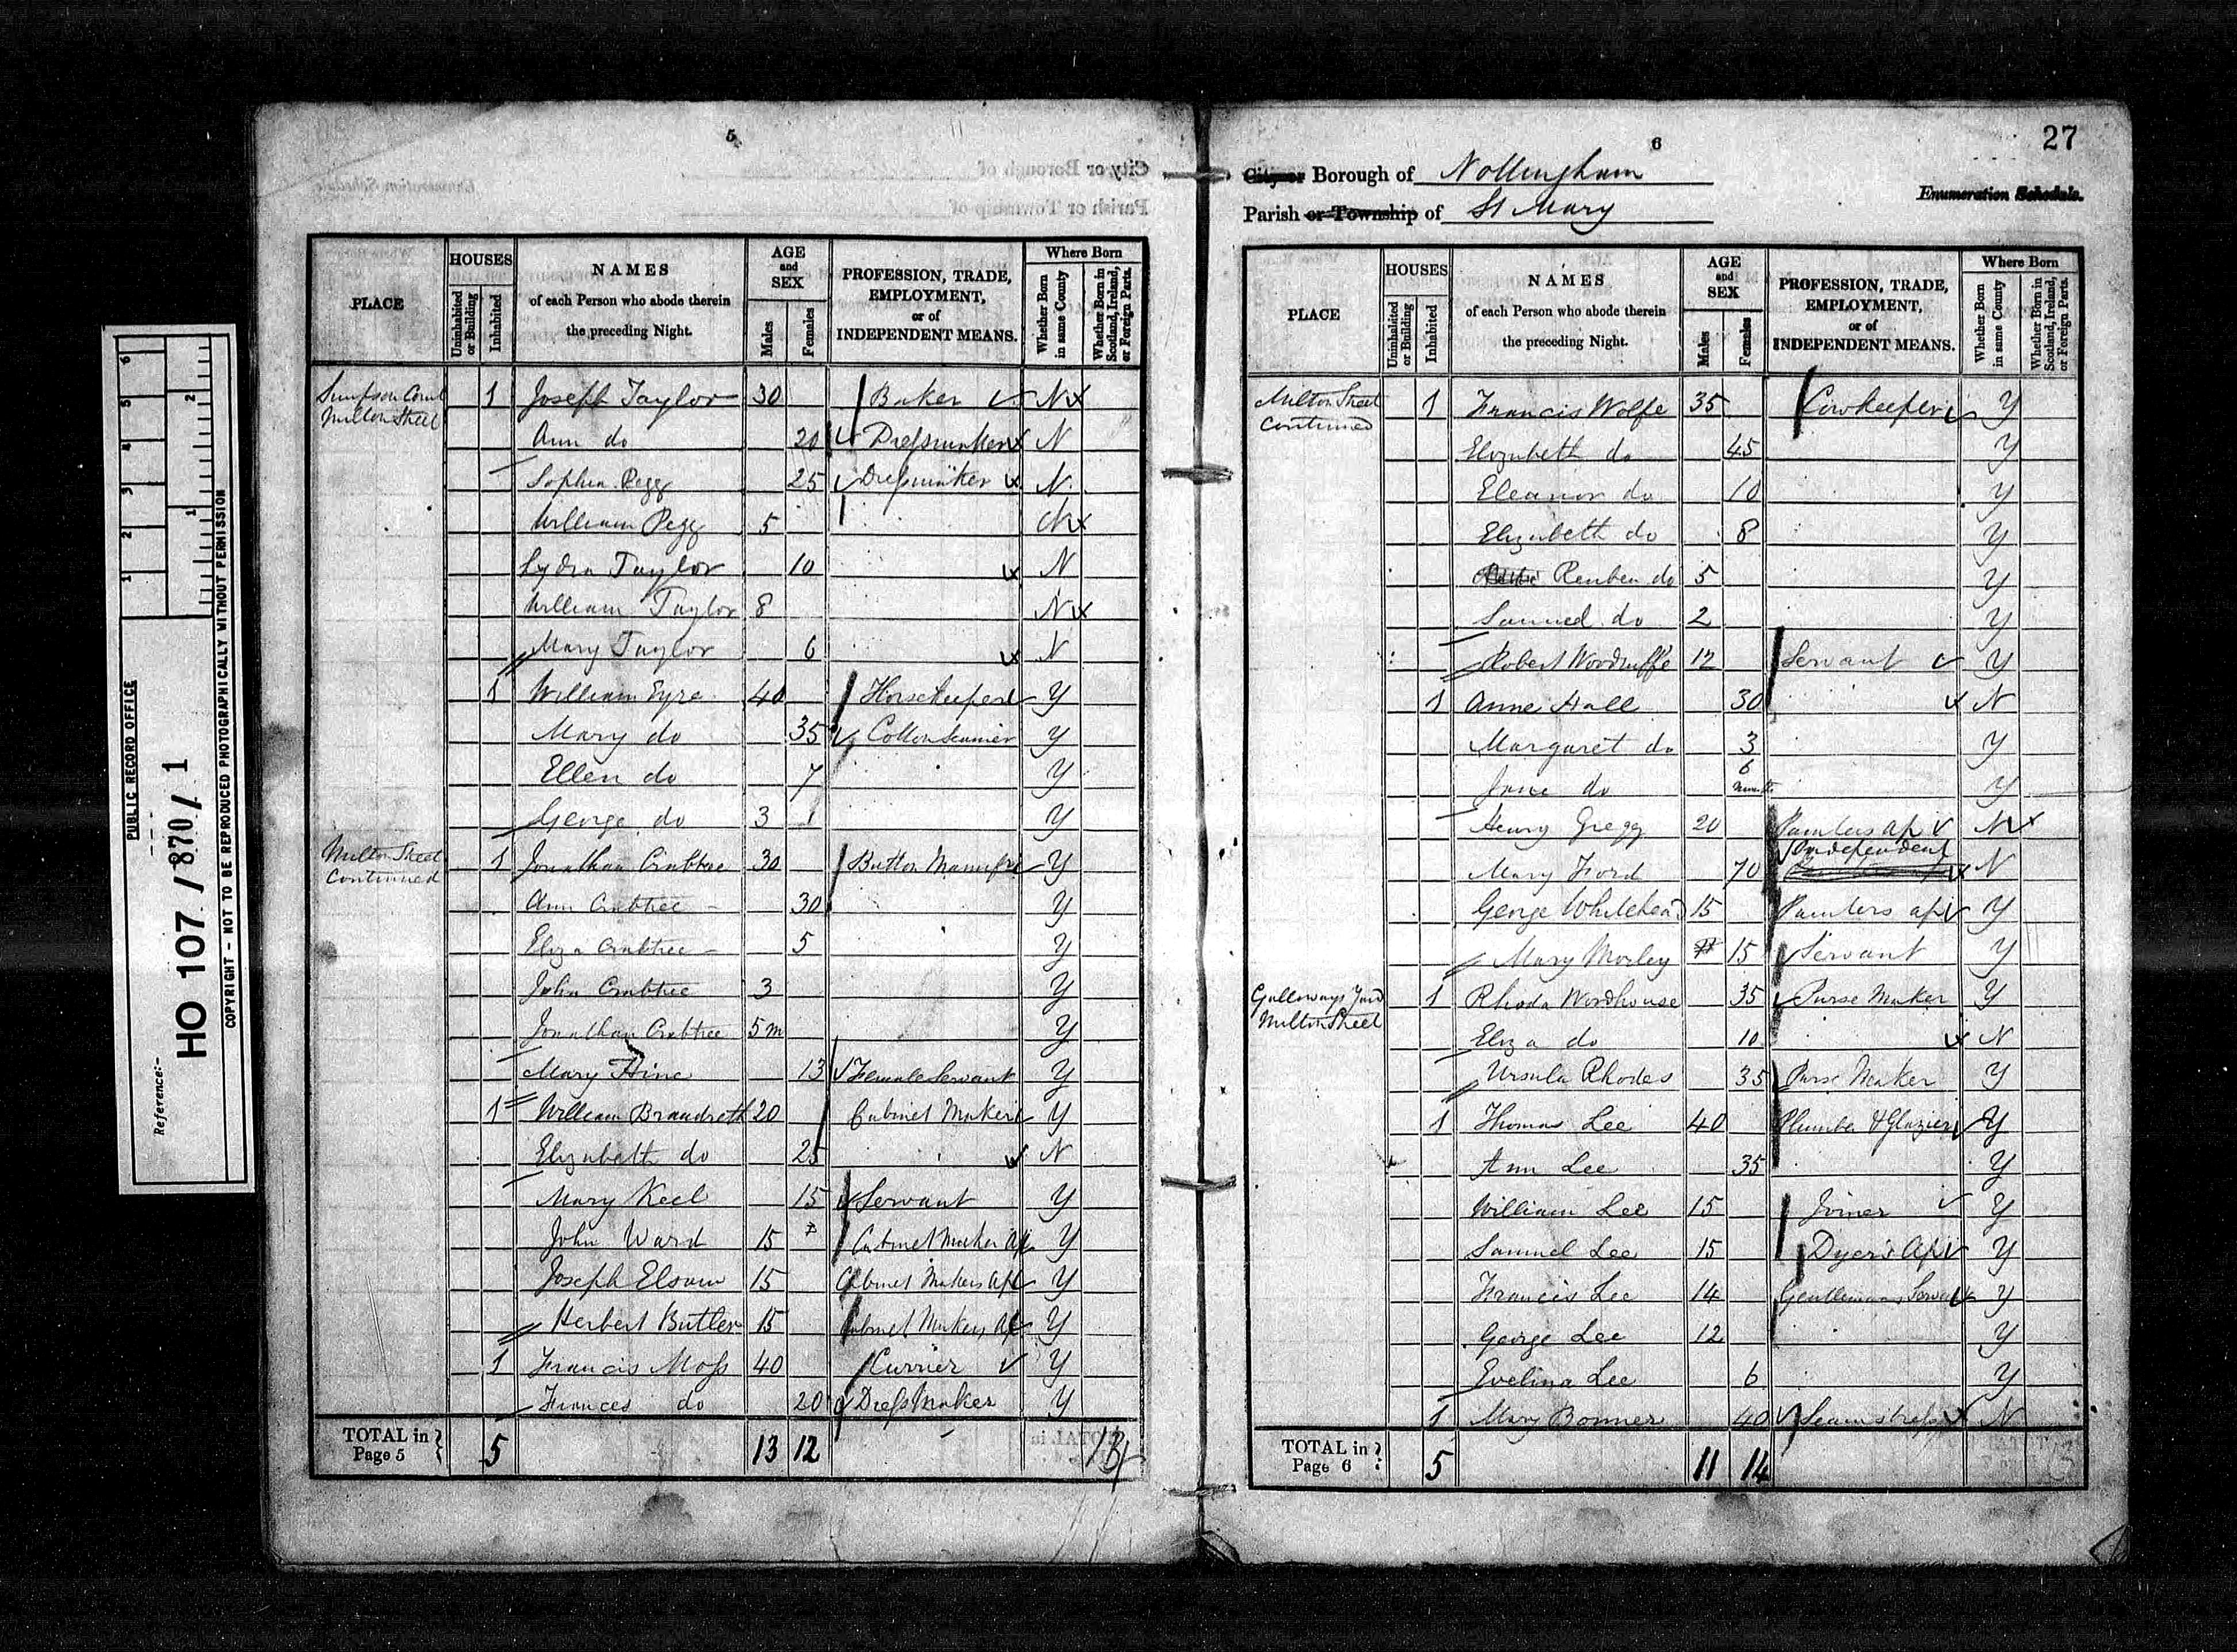 5
City or Borough of
Parish or Township of
Enumeration Schedule.
PLACE
HOUSES
Uninhabited or Building
Inhabited
NAMES
of each Person who abode therein
the preceding Night.
AGE
and
SEX
Males
Females
PROFESSION, TRADE,
EMPLOYMENT,
or of
INDEPENDENT MEANS.
Where Born
Whether Born in same County
Whether Born in Scotland, Ireland, or Foreign Parts.
Simpson Court 1 Joseph Taylor 30 Baker N
Milton Street
Ann do 20 Dressmaker N
Sophia Pegg 25 Dressmaker N
William Pegg 5 N
Lydia Taylor 10 N
William Taylor 8 N
Mary Taylor 6 N
1 William Eyre 40 Horsekeeper Y
Mary do 35 Cotton Seamer Y
Ellen do 7 Y
George do 3 Y
Milton Street 1 Jonathan Crabtree 30 Button Y
Continued
Ann Crabtree 30 Y
Eliza Crabtree 5 Y
John Crabtree 3 Y
Jonathan Crabtree 5m Y
Mary Hine 13 Female Servant Y
1 William Brandreth 20 Cabinet Maker Y
Elizabeth do 25 N
Mary Keel 15 Servant Y
John Ward 15 Cabinet Maker Ap Y
Joseph Elsam 15 Cabinet Makers Ap Y
Herbert Butler 15 Cabinet Makers Ap Y
1 Francis Moss 40 Currier Y
Frances do 20 Dress Maker Y
TOTAL in Page 5 5 13 12
6
27
City or Borough of Nottingham
Parish or Township of St Mary
Enumeration Schedule.
PLACE
HOUSES
Uninhabited or Building
Inhabited
NAMES
of each Person who abode therein
the preceding Night.
AGE
and
SEX
Males
Females
PROFESSION, TRADE,
EMPLOYMENT,
or of
INDEPENDENT MEANS.
Where Born
Whether Born in same County
Whether Born in Scotland, Ireland, or Foreign Parts.
Milton Street 1 Francis Wolfe 35 Cowkeeper Y
Continued
Elizabeth do 45 Y
Eleanor do 10 Y
Elizabeth do 8 Y
Reuben do 5 Y
Samuel do 2 Y
Robert Woodruffe 12 Servant Y
1 Anne Hall 30 N
Margaret do 3 Y
Jane do 6 months Y
Henry Gregg 20 Painters ap N
Mary Ford 70 Independent N
George Whitehead 15 Painters ap Y
Mary Morley 15 Servant Y
Galloways Yard 1 Rhoda Woodhouse 35 Purse Maker Y
Milton Street
Eliza do 10 N
Ursula Rhodes 35 Purse Maker Y
1 Thomas Lee 40 Plumber & Glazier Y
Ann Lee 35 Y
William Lee 15 Joiner Y
Samuel Lee 15 Dyer's Ap Y
Francis Lee 14 Gentlemans Servant Y
George Lee 12 Y
Evelina Lee 6 Y
1 Mary Bonner 40 Seamstress N
TOTAL in Page 6 5 11 14
PUBLIC RECORD OFFICE
Reference:-
HO 107/870/1
COPYRIGHT - NOT TO BE REPRODUCED PHOTOGRAPHICALLY WITHOUT PERMISSION
1 2 3 4 5 6
1 2